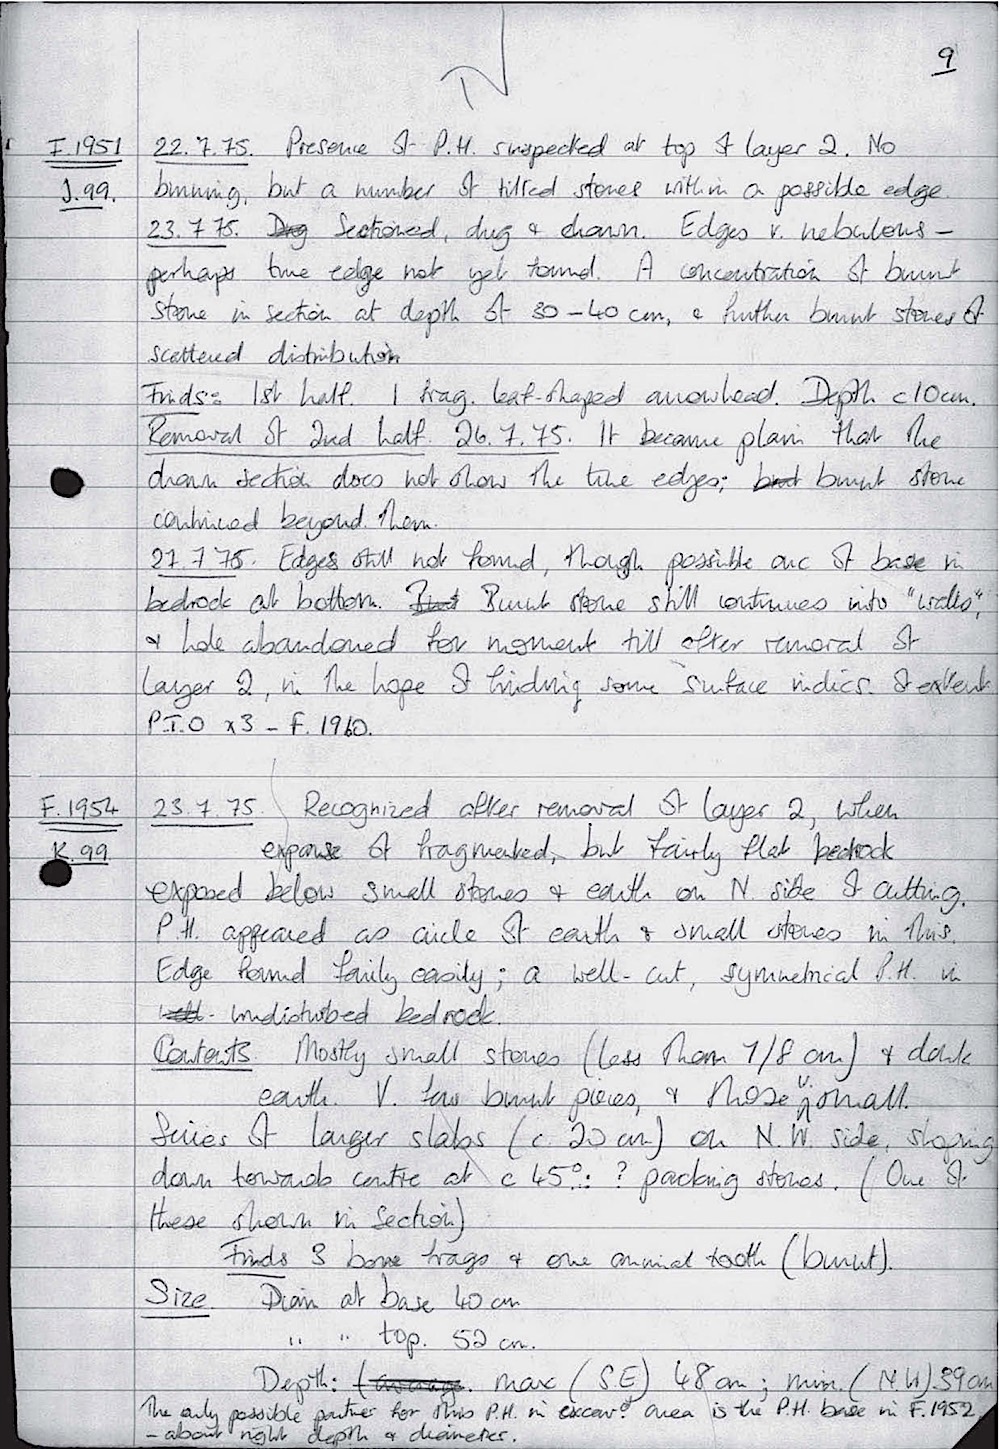 9
F.1951 22.7.75. Presence of P.H. suspected at top of layer 2. No
J.99. burning, but a number of tilted stones within a possible edge.
23.7.75. Dug Sectioned, dug & drawn. Edges v. nebulous –
perhaps true edge not yet found. A concentration of burnt
stone in section at depth of 30–40 cm, & further burnt stones of
scattered distribution
Finds: 1st half. 1 frag. leaf-shaped arrowhead. Depth c10cm.
Removal of 2nd half. 26.7.75. It became plain that the
drawn section does not show the true edges; burnt stone
continued beyond them.
27.7.75. Edges still not found, though possible arc of base in
bedrock at bottom. Burnt stone still continues into "walls",
& hole abandoned for moment till after removal of
layer 2, in the hope of finding some surface indics. of extent
P.T.O x3 – F.1960.
F.1954 23.7.75. Recognized after removal of layer 2, when
K.99 expanse of fragmented, but fairly flat bedrock
exposed below small stones & earth on N. side of cutting.
P.H. appeared as circle of earth & small stones in this.
Edge found fairly easily; a well-cut, symmetrical P.H. in
well- undisturbed bedrock.
Contents Mostly small stones (less than 7/8 cm) & dark
earth. V. few burnt pieces, & those v. small.
Series of larger slabs (c. 20 cm) on N.W. side, sloping
down towards centre at c 45°: ? packing stones. (One of
these shown in Section)
Finds 3 bone frags & one animal tooth (burnt).
Size. Diam at base 40 cm
" " top. 52 cm.
Depth: (average. max (SE) 48cm; min. (N.W) 39cm
The only possible partner for this P.H. in excavd. area is the P.H. base in F.1952
– about right depth & diameter.